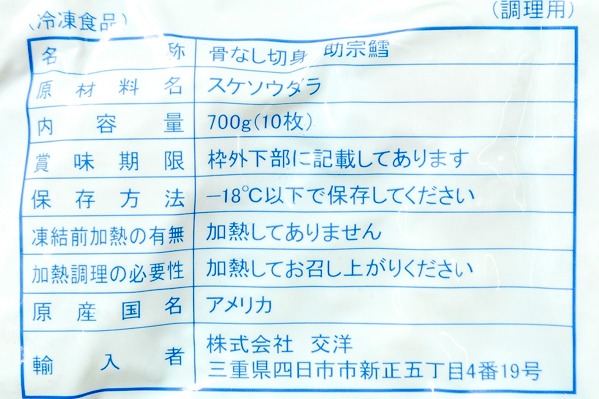 (冷凍食品)
(調理用)
名称 骨なし切身 助宗鱈
原材料名 スケソウダラ
内容量 700g(10枚)
賞味期限 枠外下部に記載してあります
保存方法 −18℃以下で保存してください
凍結前加熱の有無 加熱してありません
加熱調理の必要性 加熱してお召し上がりください
原産国名 アメリカ
輸入者 株式会社 交洋
三重県四日市市新正五丁目4番19号